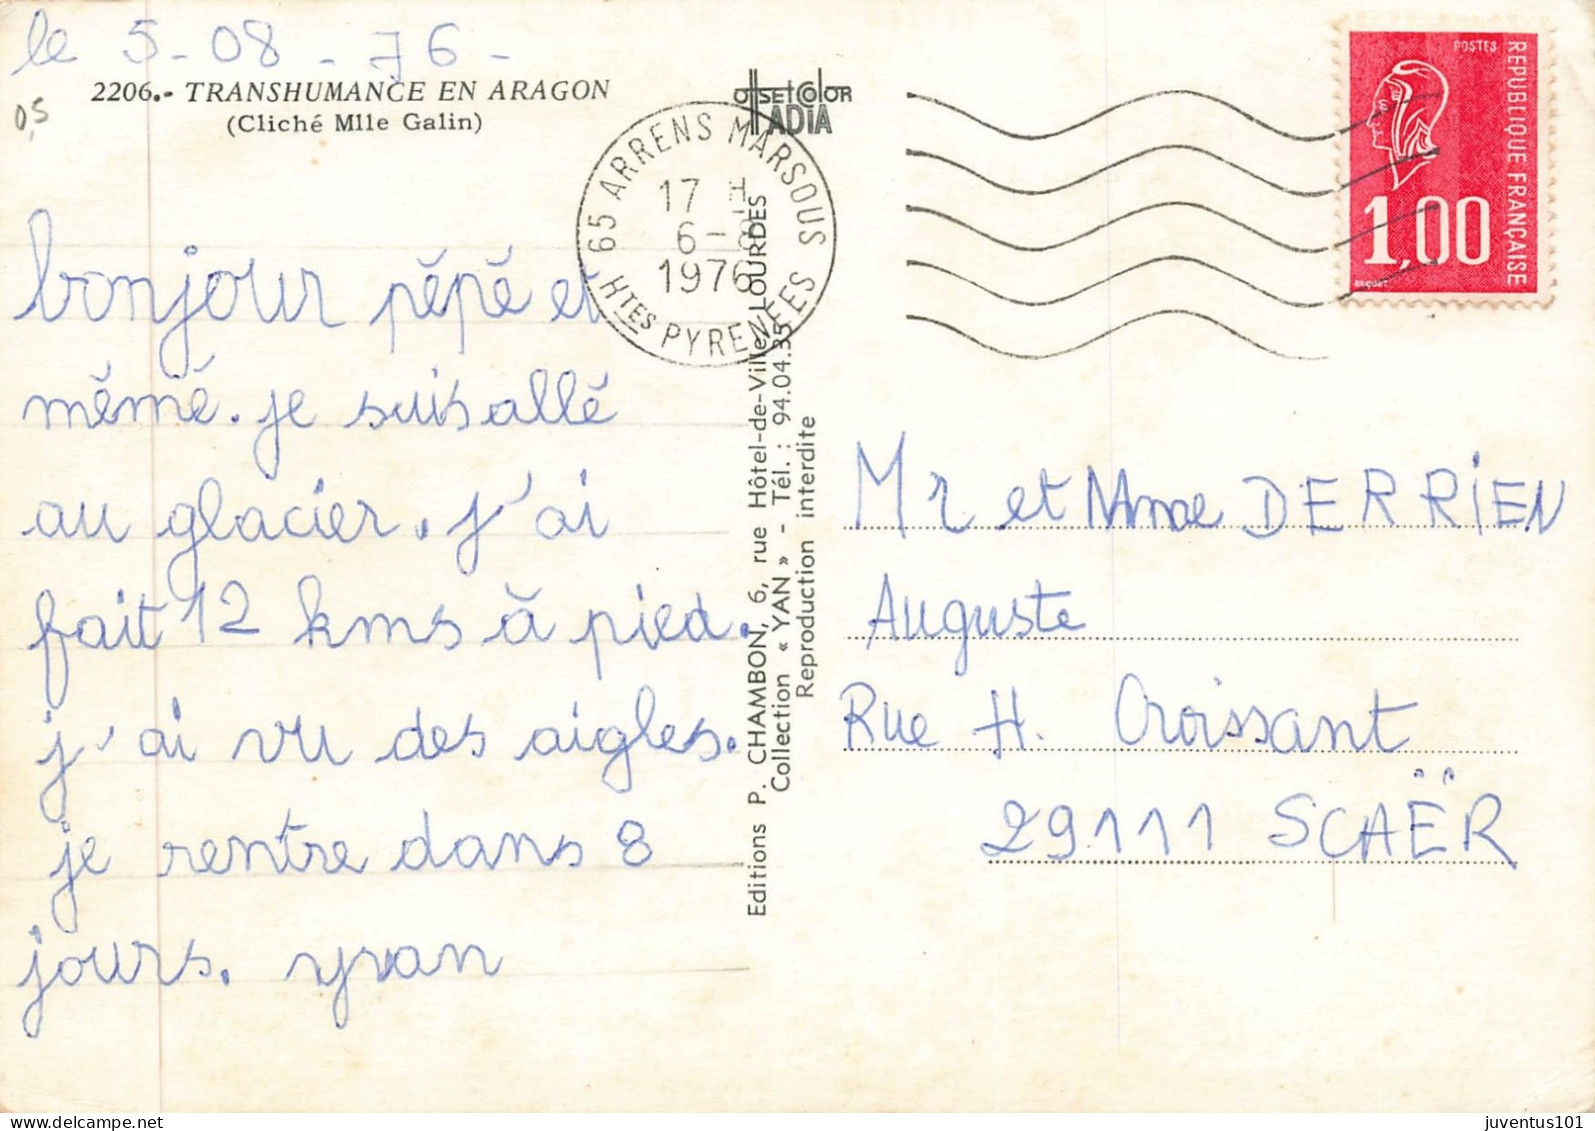 le 5-08-76-
0,5
2206.- TRANSHUMANCE EN ARAGON
(Cliché Mlle Galin)
bonjour pépé et
mémé. je suis allé
au glacier. j'ai
fait 12 kms à pied.
j'ai vu des aigles.
je rentre dans 8
jours. yvan
offset color
HADIA
65 ARRENS MARSOUS
17 H
6-8
1976
HTES PYRENEES
Editions P. CHAMBON, 6, rue Hôtel-de-Ville, LOURDES
Collection « YAN » - Tél. : 94.04.35
Reproduction interdite
POSTES
REPUBLIQUE FRANÇAISE
1,00
BEQUET
Mr et Mme DERRIEN
Auguste
Rue H. Croissant
29111 SCAËR
juventus101